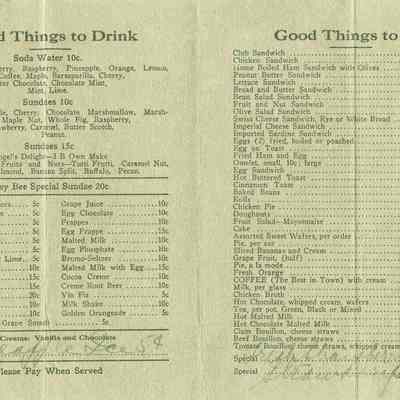 d Things to Drink
Soda Water 10c.
erry, Raspberry, Pineapple, Orange, Lemon,
Coffee, Maple, Sarsaparilla, Cherry,
ter Chocolate, Chocolate Mint,
Mint, Lime.
Sundaes 10c
le, Cherry, Chocolate Marshmallow, Marsh-
Maple Nut, Whole Fig, Raspberry,
wberry, Caramel, Butter Scotch,
Peanut.
Sundaes 15c
gel's Delight—3 B Own Make
Fruits and Nuts—Tutti Frutti, Caramel Nut,
lmond, Banana Split, Buffalo, Pecan.
y Bee Special Sundae 20c
5c Grape Juice 10c
5c Egg Chocolate 10c
5c Frappes 10c
5c Egg Frappe 15c
5c Malted Milk 10c
5c Egg Phosphate 10c
Lime 5c Bromo-Seltzer 10c
10c Malted Milk with Egg 15c
15c Cocoa Creme 10c
15c Creme Root Beer 10c
20c Vin Fiz 5c
10c Milk Shake 10c
10c Golden Orangeade 5c
Grape Smash 5c
Creams: Vanilla and Chocolate
5¢
lease Pay When Served
Good Things to
Club Sandwich
Chicken Sandwich
Home Boiled Ham Sandwich with Olives
Peanut Butter Sandwich
Lettuce Sandwich
Bread and Butter Sandwich
Bean Salad Sandwich
Fruit and Nut Sandwich
Olive Salad Sandwich
Swiss Cheese Sandwich, Rye or White Bread
Imperial Cheese Sandwich
Imported Sardine Sandwich
Eggs (2) fried, boiled or poached
Egg on Toast
Fried Ham and Egg
Omlet, small 10c; large
Egg Sandwich
Hot Buttered Toast
Cinnamon Toast
Baked Beans
Rolls
Chicken Pie
Doughnuts
Fruit Salad—Mayonnaise
Cake
Assorted Sweet Wafers, per order
Pie, per cut
Sliced Bananas and Cream
Grape Fruit, (half)
Pie, a la mode
Fresh Orange
COFFEE (The Best in Town) with cream
Milk, per glass
Chicken Broth
Hot Chocolate, whipped cream, wafers
Tea, per pot, Green, Black or Mixed
Hot Malted Milk
Hot Chocolate Malted Milk
Clam Bouillon, cheese straws
Beef Bouillon, cheese straws
Tomato Bouillon, cheese straws, whipped cream
Special
Special